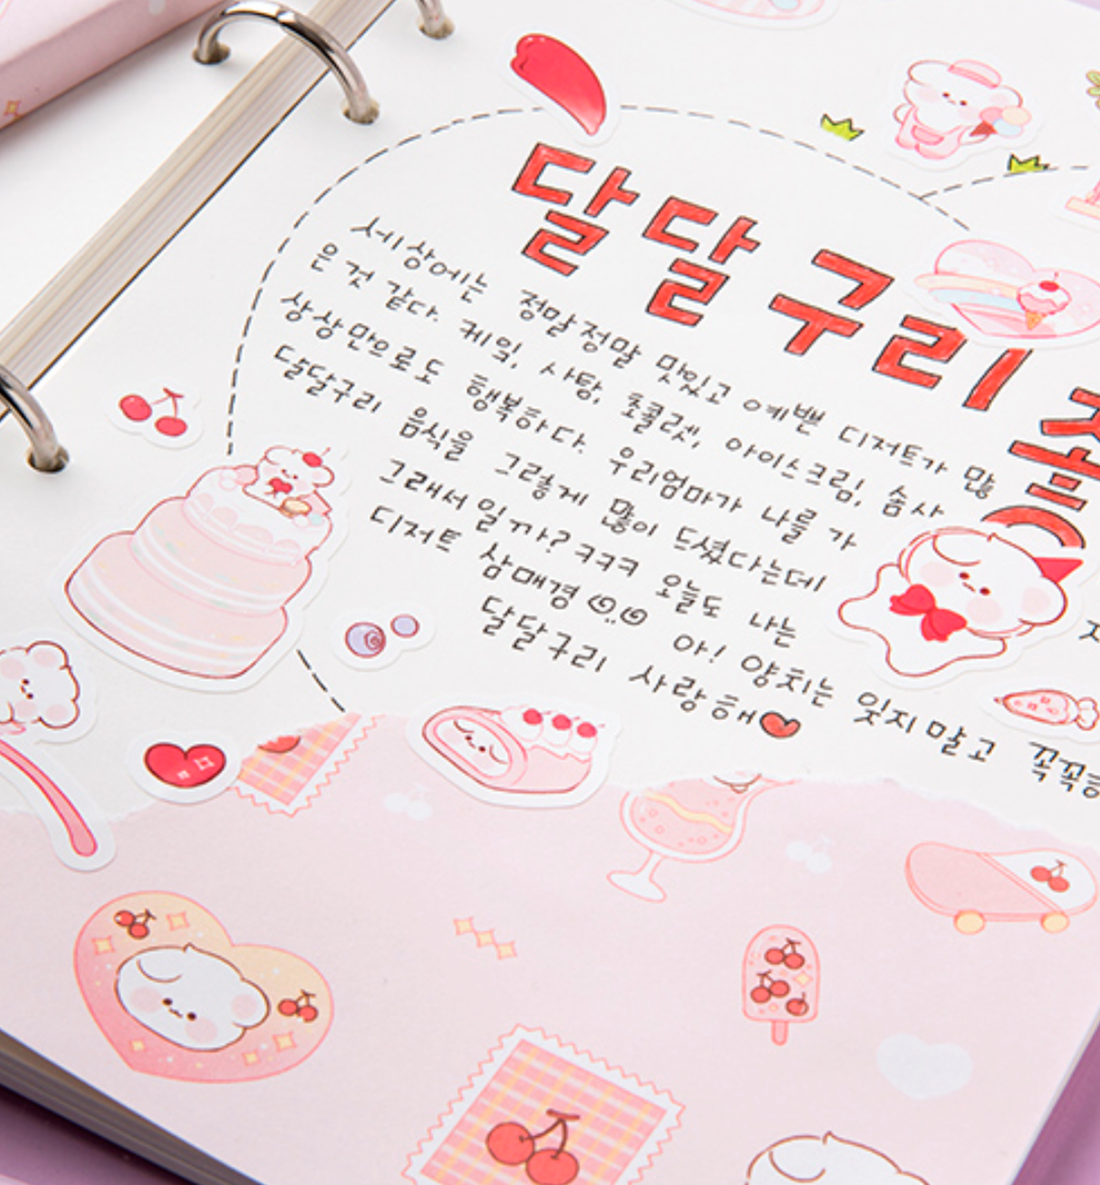 달달구리
세상에는 정말정말 맛있고 예쁜 디저트가 많
은 것 같다. 케잌, 사탕, 초콜렛, 아이스크림, 솜사
상상만으로도 행복하다. 우리엄마가 나를 가
달달구리 음식을 그렇게 많이 드셨다는데
그래서일까? ㅋㅋㅋ 오늘도 나는
디저트 삼매경 @..@ 아! 양치는 잊지말고
달달구리 사랑해♥